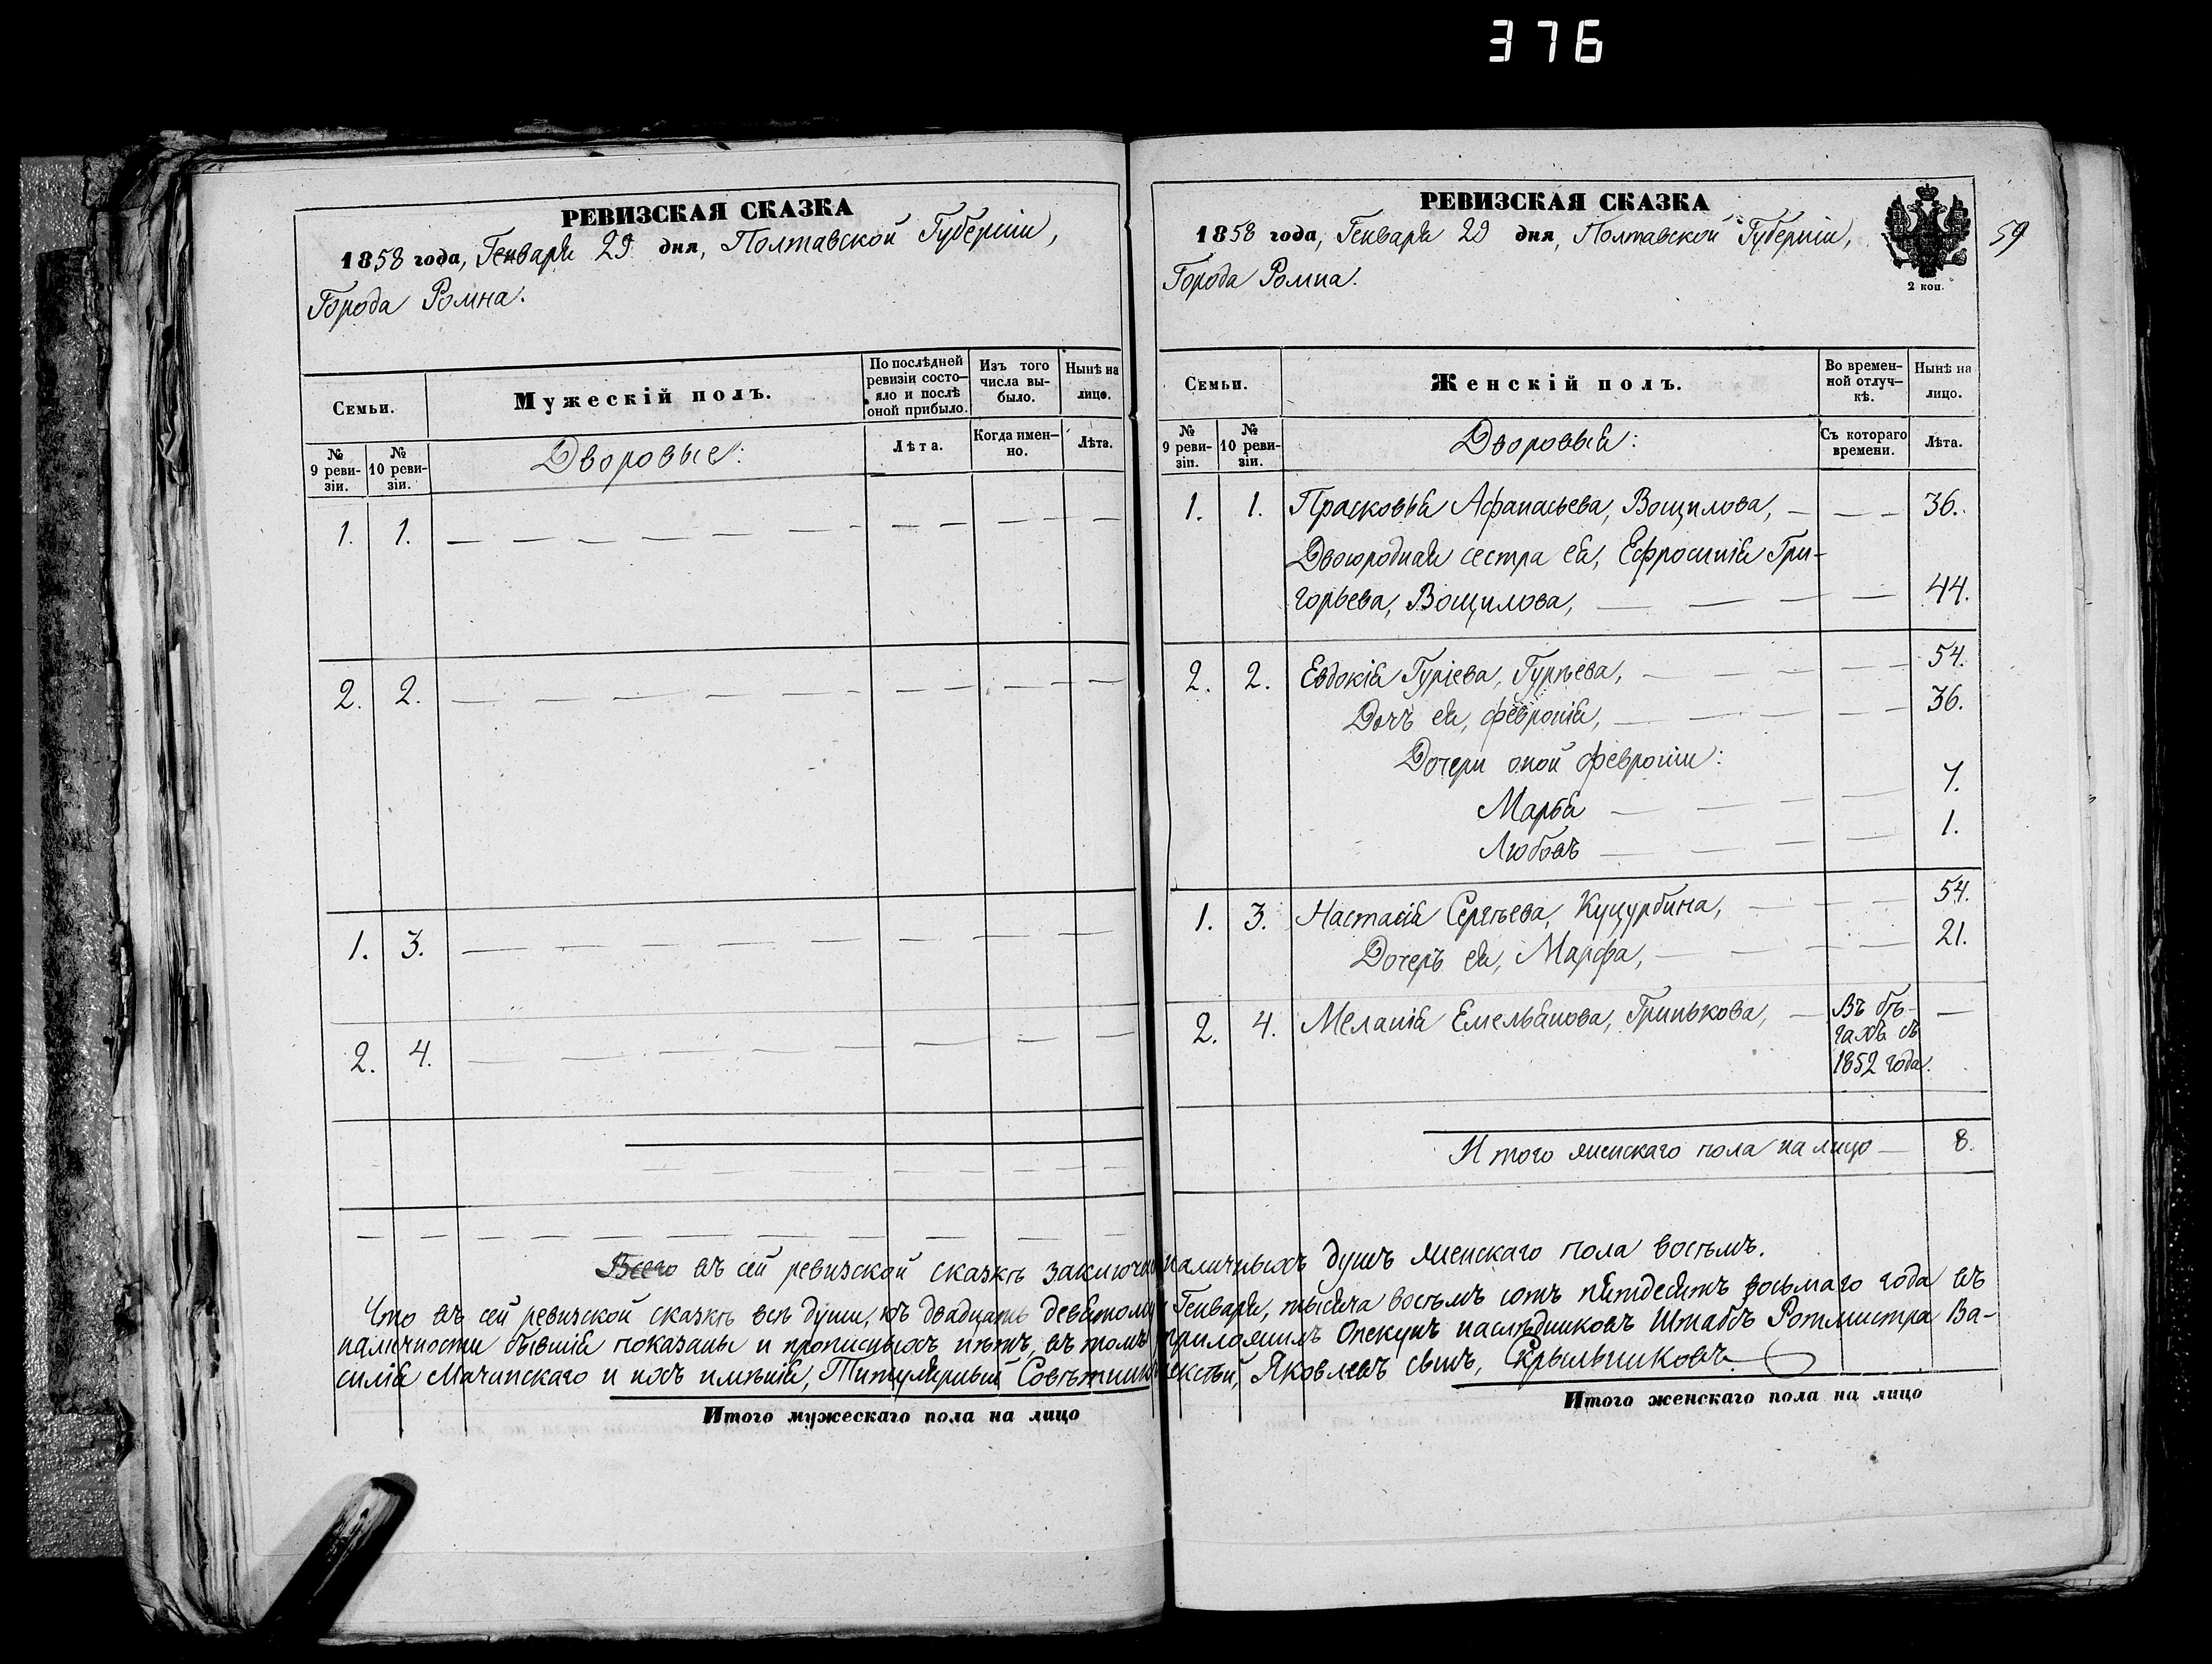 376
РЕВИЗСКАЯ СКАЗКА
1858 года, Генваря 29 дня, Полтавской Губерніи,
Города Ромна.
Семьи.
Мужескій полъ.
По послѣдней ревизіи состо-яло и послѣ оной прибыло.
Изъ того числа вы-было.
Нынѣ на лицо.
№ 9 реви-зіи.
№ 10 реви-зіи.
Дворовые:
Лѣта.
Когда имен-но.
Лѣта.
1. 1. — — — — — —
2. 2. — — — — — —
1. 3. — — — — — —
2. 4. — — — — — —
РЕВИЗСКАЯ СКАЗКА
1858 года, Генваря 29 дня, Полтавской Губерніи,
Города Ромна.
2 коп.
59
Семьи.
Женскій полъ.
Во времен-ной отлуч-кѣ.
Нынѣ на лицо.
№ 9 реви-зіи.
№ 10 реви-зіи.
Дворовыя:
Съ котораго времени.
Лѣта.
1. 1. Прасковья Афанасьева, Вощилова, — — — 36.
Двоюродная сестра ея, Ефросинія Гри-
горьева, Вощилова, — — — 44.
2. 2. Евдокія Гуріева, Гурѣева, — — — 54.
Дочь ея, Февронія, — — — 36.
Дочери оной Февроніи:
Марья — — — 7.
Любовь — — — 1.
1. 3. Настасія Сергѣева, Куцурбина, — — — 54.
Дочерь ея, Марфа, — — — 21.
2. 4. Меланія Емельянова, Гринькова, — Въ бѣ-гахъ съ 1852 года. —
Итого женскаго пола на лицо — 8.
Всего въ сей ревизской сказкѣ наличныхъ душъ женскаго пола восемь.
Что въ сей ревизской сказкѣ всѣ души, къ двадцать девятому Генваря, тысяча восемь сотъ пятдесятъ восьмаго года въ
наличности бывшія показаны и прописныхъ нѣтъ, въ томъ Опекунъ наслѣдниковъ Штабъ Ротмистра Ва-
силія Мачинскаго и ихъ имѣнія, Титулярный Совѣтникъ Яковлевъ сынъ, Крыльниковъ.
Итого мужескаго пола на лицо
Итого женскаго пола на лицо